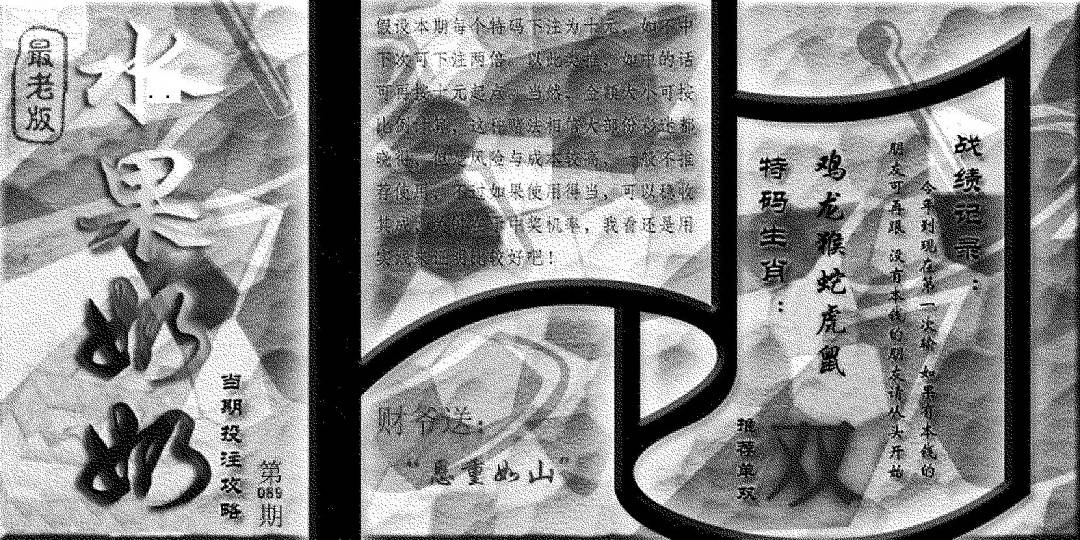 最老版
水果奶奶
当期投注攻略
第089期
假设本期每个特码下注为十元，如不中
下次可下注两倍，以此类推，如中的话
可再按十元起点，当然，金额大小可按
比例
这种赌法相信大部份彩迷都
风险与成本较高，一般不推
荐使用，不过如果使用得当，可以稳收
中奖机率，我看还是用
比较好吧！
财爷送：
“恩重如山”
战绩记录：
今年到现在第一次输 如果有本钱的
朋友可再跟 没有本钱的朋友请从头开始
鸡龙猴蛇虎鼠
特码生肖：
推荐单双
双